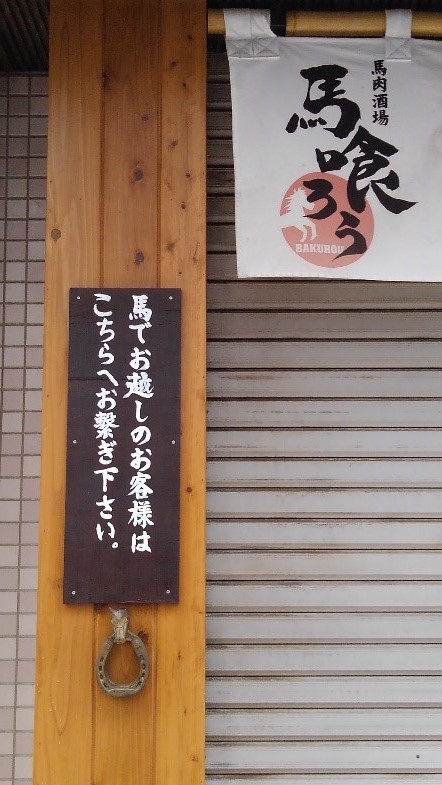 馬肉酒場
馬喰ろう
BAKUROU
馬でお越しのお客様は
こちらへお繋ぎ下さい。